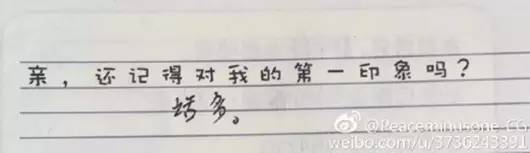 亲，还记得对我的第一印象吗？
话多。
@Peaceminusone_CG
weibo.com/u/3736243391